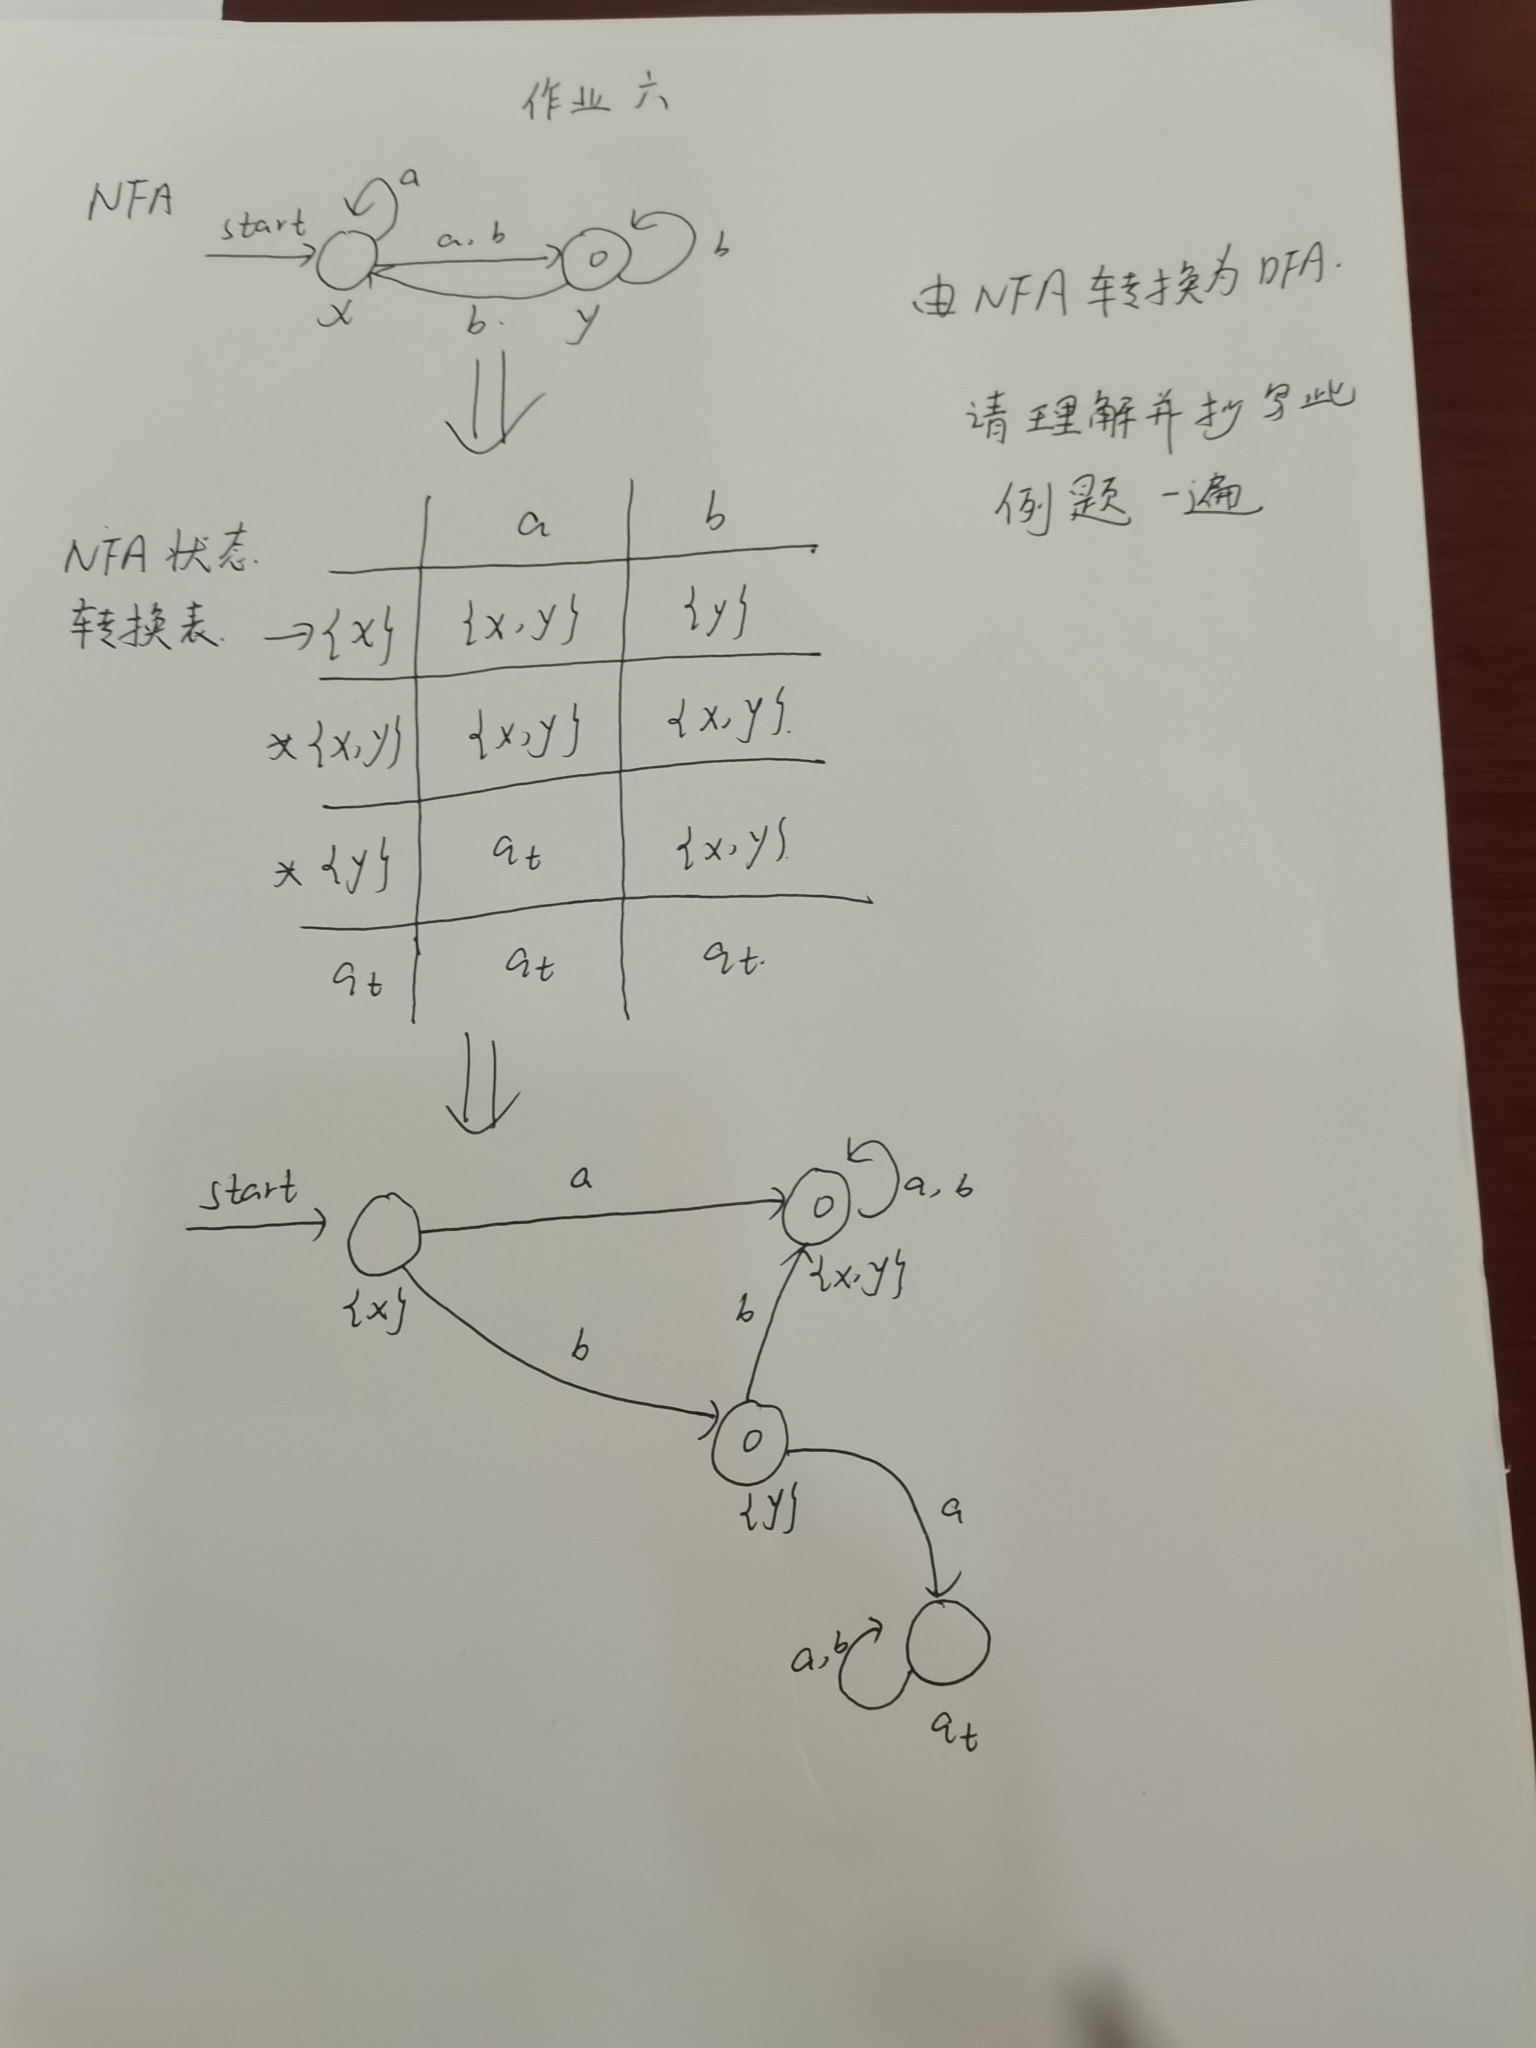 作业六
NFA
start
a
a, b
b
b.
x
y
由NFA转换为DFA.
请理解并抄写此
例题一遍
NFA状态.
转换表.
a b
→{x} {x,y} {y}
*{x,y} {x,y} {x,y}.
*{y} qt {x,y}.
qt qt qt.
start
a
a, b
{x}
{x,y}
b
b
{y}
a
a,b
qt